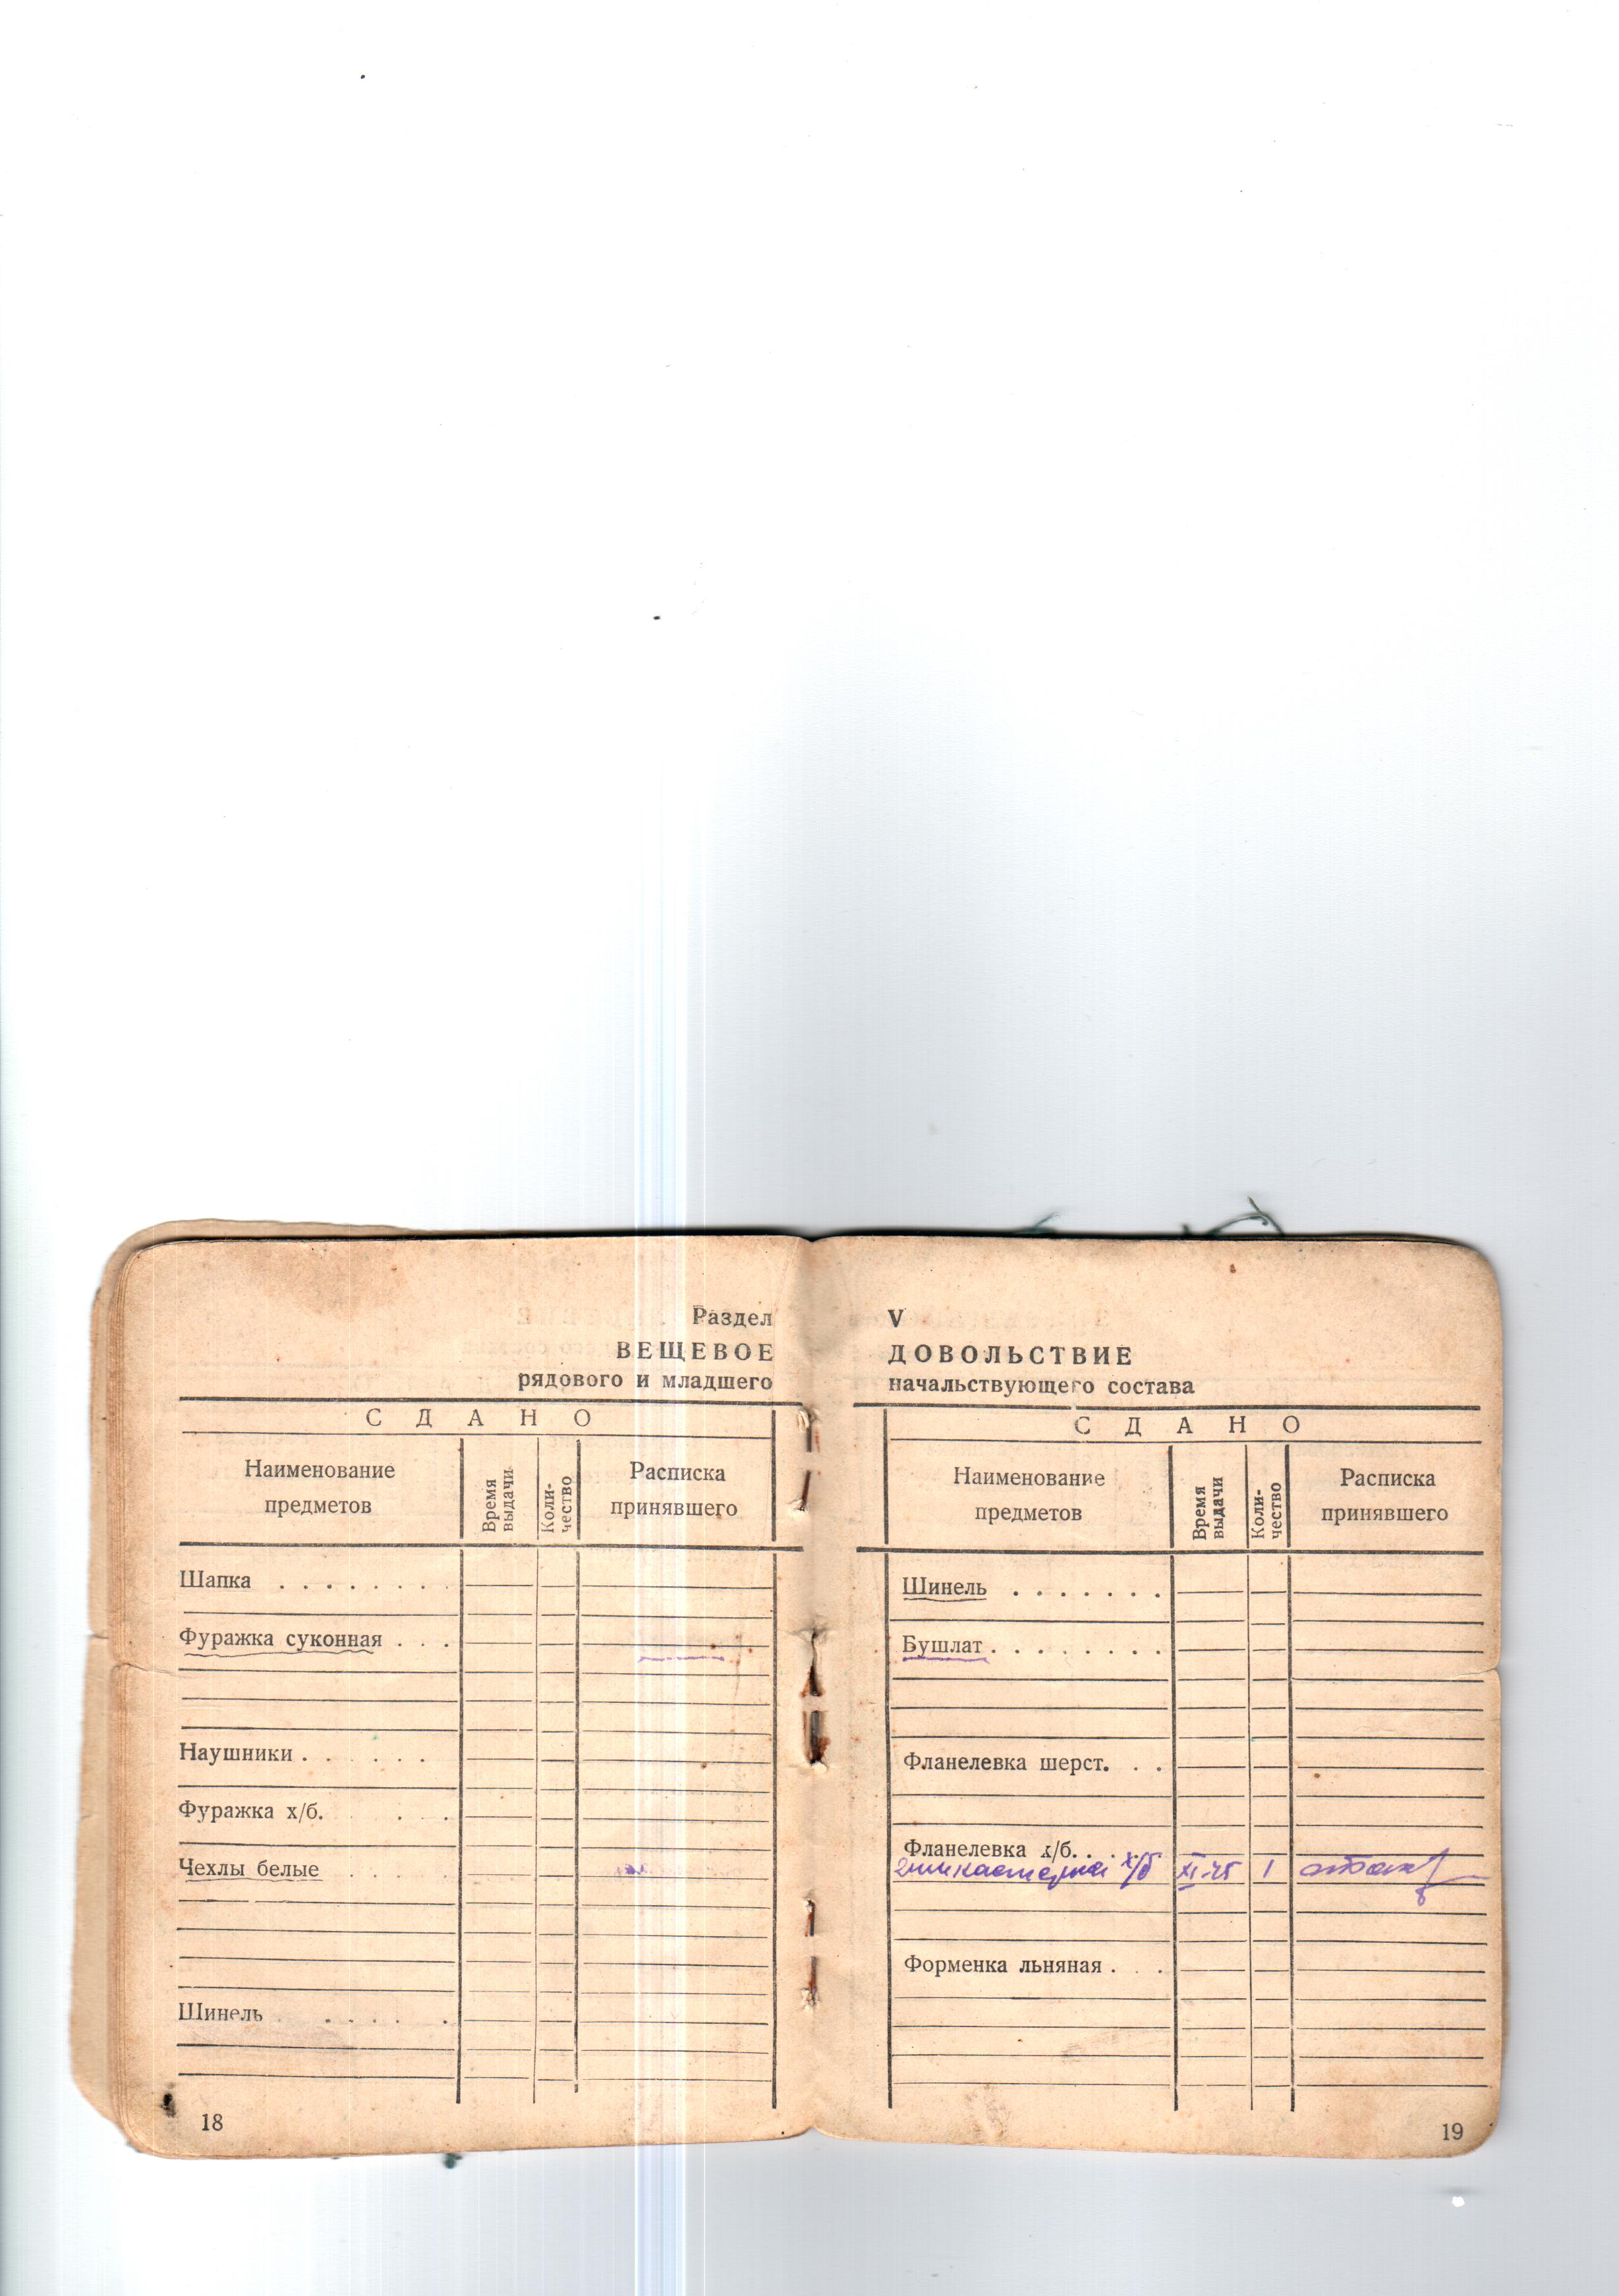 Раздел
ВЕЩЕВОЕ
рядового и младшего
С Д А Н О
Наименование предметов
Время выдачи
Коли-чество
Расписка принявшего
Шапка . . . . . . . .
Фуражка суконная . . .
Наушники . . . . . .
Фуражка х/б. . . .
Чехлы белые . . . .
Шинель . . . . . .
18
V
ДОВОЛЬСТВИЕ
начальствующего состава
С Д А Н О
Наименование предметов
Время выдачи
Коли-чество
Расписка принявшего
Шинель . . . . . . .
Бушлат . . . . . . . .
Фланелевка шерст. . .
Фланелевка х/б. . .
х/б XI-45 1
Форменка льняная . . .
19